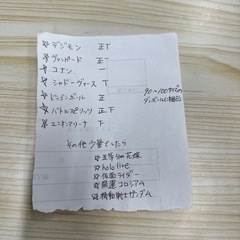 ☆デジモン 正T
☆ヴァンガード 正一
☆コナン 一
☆シャドーヴァース T
☆ドラゴンボール 正
☆バトルスピリッツ 正下
☆ユニオンアリーナ 下
90〜100サイズの
ダンボールに梱包
その他少量でしたら
☆五等分の花嫁
☆hololive
☆仮面ライダー
☆開運コロシアム
☆機動戦士ガンダム